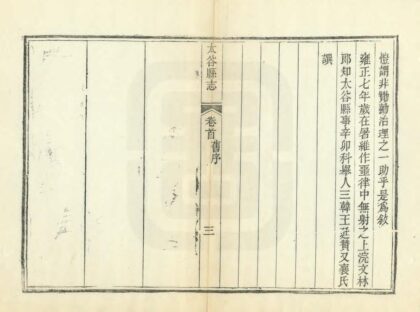 愷謂非勷勤治理之一助乎是為敘
雍正七年歲在屠維作噩律中無射之上浣文林
郎知太谷縣事辛卯科舉人三韓王廷贊又襄氏
譔
太谷縣志
卷首舊序
三